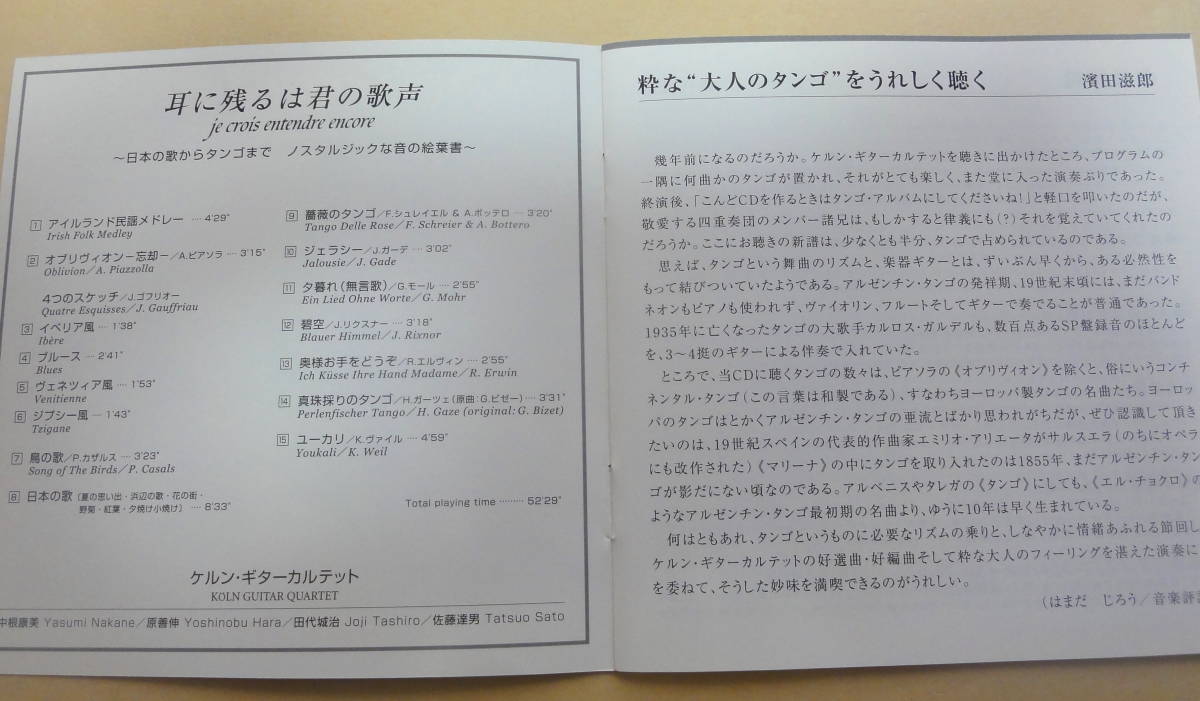 耳に残るは君の歌声
je crois entendre encore
〜日本の歌からタンゴまで ノスタルジックな音の絵葉書〜
1 アイルランド民謡メドレー ···· 4'29"
Irish Folk Medley
2 オブリヴィオン−忘却−／A.ピアソラ ···· 3'15"
Oblivion／A. Piazzolla
4つのスケッチ／J.ゴフリオー
Quatre Esquisses／J. Gauffriau
3 イベリア風 ···· 1'38"
Ibère
4 ブルース ···· 2'41"
Blues
5 ヴェネツィア風 ···· 1'53"
Venitienne
6 ジプシー風 ···· 1'43"
Tzigane
7 鳥の歌／P.カザルス ···· 3'23"
Song of The Birds／P. Casals
8 日本の歌〔夏の思い出・浜辺の歌・花の街・
野菊・紅葉・夕焼け小焼け〕 ···· 8'33"
9 薔薇のタンゴ／F.シュレイエル & A.ボッテロ ···· 3'20"
Tango Delle Rose／F. Schreier & A. Bottero
10 ジェラシー／J.ガーデ ···· 3'02"
Jalousie／J. Gade
11 夕暮れ（無言歌）／G.モール ···· 2'55"
Ein Lied Ohne Worte／G. Mohr
12 碧空／J.リクスナー ···· 3'18"
Blauer Himmel／J. Rixnor
13 奥様お手をどうぞ／R.エルヴィン ···· 2'55"
Ich Küsse Ihre Hand Madame／R. Erwin
14 真珠採りのタンゴ／H.ガーツェ（原曲：G.ビゼー） ···· 3'31"
Perlenfischer Tango／H. Gaze (original: G. Bizet)
15 ユーカリ／K.ヴァイル ···· 4'59"
Youkali／K. Weil
Total playing time ········· 52'29"
ケルン・ギターカルテット
KOLN GUITAR QUARTET
中根康美 Yasumi Nakane／原善伸 Yoshinobu Hara／田代城治 Joji Tashiro／佐藤達男 Tatsuo Sato
粋な“大人のタンゴ”をうれしく聴く 濱田滋郎
幾年前になるのだろうか。ケルン・ギターカルテットを聴きに出かけたところ、プログラムの
一隅に何曲かのタンゴが置かれ、それがとても楽しく、また堂に入った演奏ぶりであった。
終演後、「こんどCDを作るときはタンゴ・アルバムにしてくださいね！」と軽口を叩いたのだが、
敬愛する四重奏団のメンバー諸兄は、もしかすると律義にも（？）それを覚えていてくれたの
だろうか。ここにお聴きの新譜は、少なくとも半分、タンゴで占められているのである。
思えば、タンゴという舞曲のリズムと、楽器ギターとは、ずいぶん早くから、ある必然性を
もって結びついていたようである。アルゼンチン・タンゴの発祥期、19世紀末頃には、まだバンド
ネオンもピアノも使われず、ヴァイオリン、フルートそしてギターで奏でることが普通であった。
1935年に亡くなったタンゴの大歌手カルロス・ガルデルも、数百点あるSP盤録音のほとんど
を、3〜4挺のギターによる伴奏で入れていた。
ところで、当CDに聴くタンゴの数々は、ピアソラの《オブリヴィオン》を除くと、俗にいうコンチ
ネンタル・タンゴ（この言葉は和製である）、すなわちヨーロッパ製タンゴの名曲たち。ヨーロッ
パのタンゴはとかくアルゼンチン・タンゴの亜流とばかり思われがちだが、ぜひ認識して頂き
たいのは、19世紀スペインの代表的作曲家エミリオ・アリエータがサルスエラ（のちにオペラ
にも改作された）《マリーナ》の中にタンゴを取り入れたのは1855年、まだアルゼンチン・タン
ゴが影だにない頃なのである。アルベニスやタレガの《タンゴ》にしても、《エル・チョクロ》の
ようなアルゼンチン・タンゴ最初期の名曲より、ゆうに10年は早く生まれている。
何はともあれ、タンゴというものに必要なリズムの乗りと、しなやかに情緒あふれる節回し
ケルン・ギターカルテットの好選曲・好編曲そして粋な大人のフィーリングを湛えた演奏に
を委ねて、そうした妙味を満喫できるのがうれしい。
（はまだ じろう／音楽評論